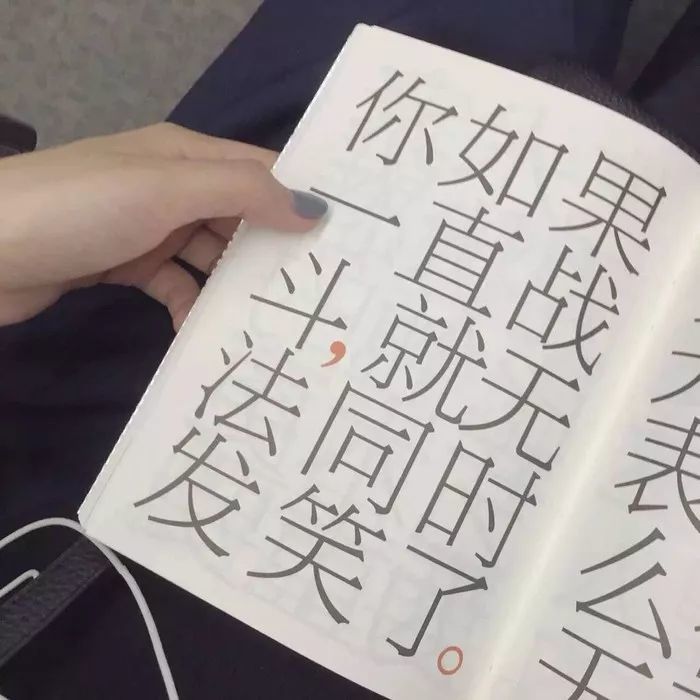 你如果
一直战
斗，就无
法同时
发笑了。
表
么